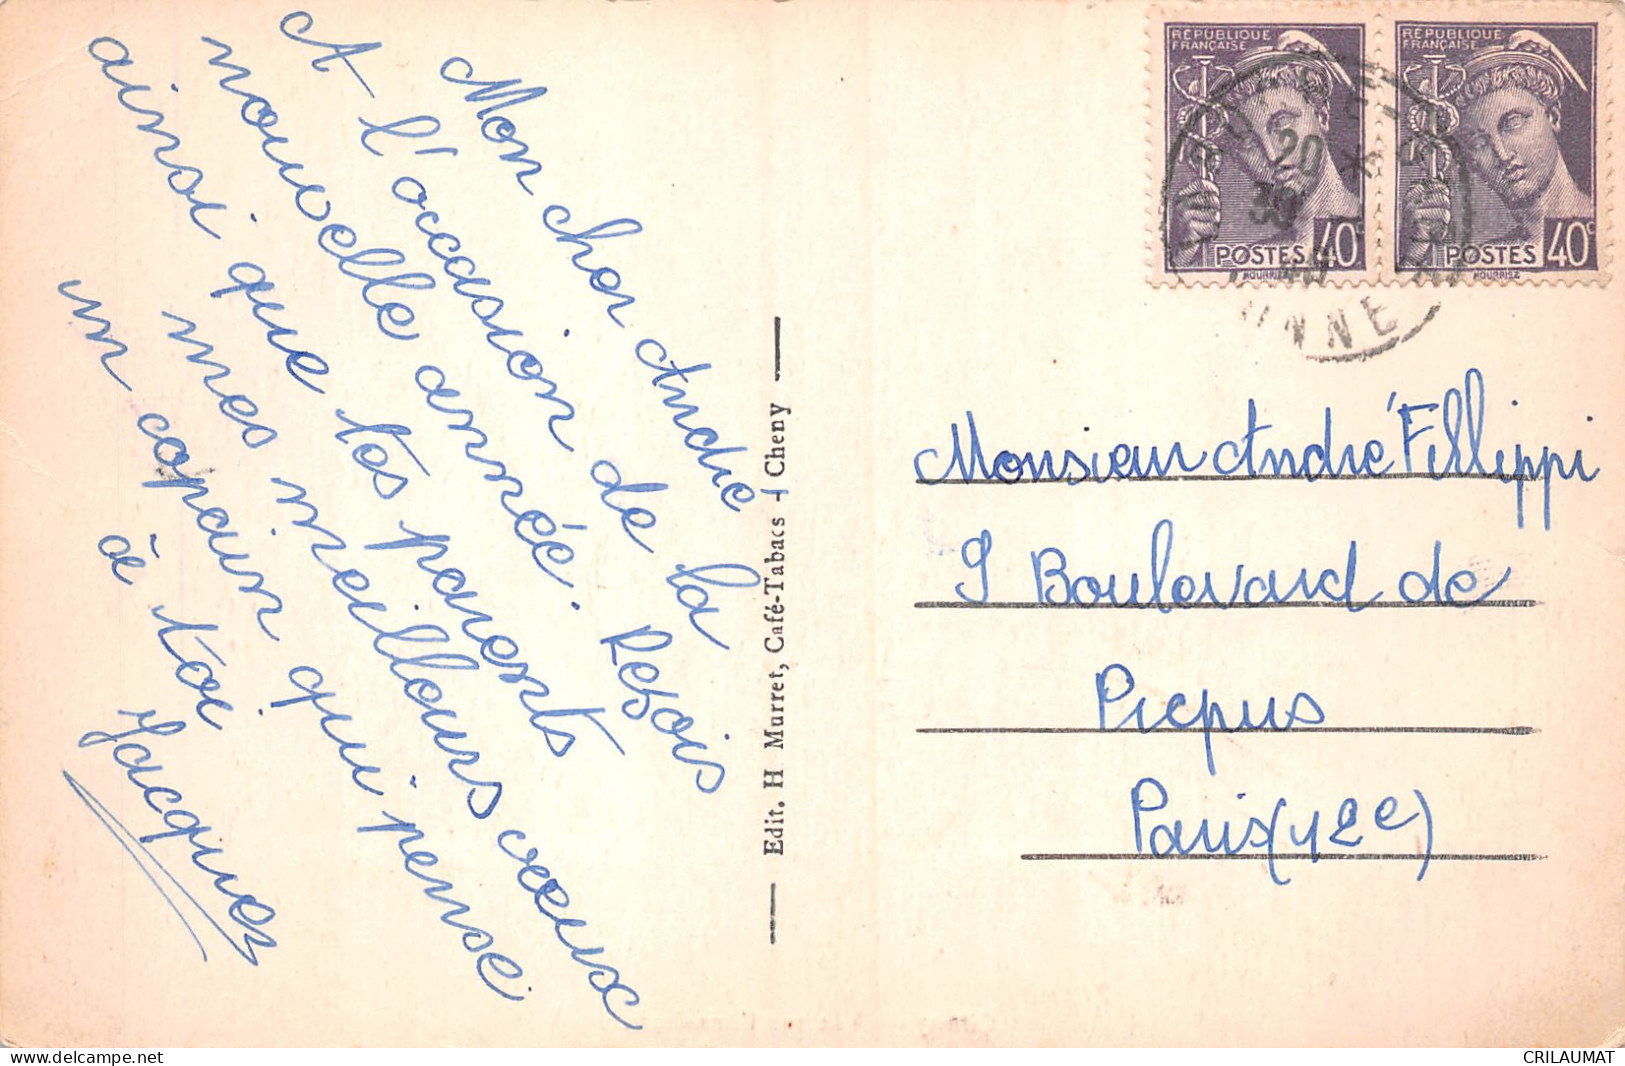 Mon cher André
A l'occasion de la
nouvelle année. Reçois
ainsi que tes parents
mes meilleurs voeux
un copain qui pense
à toi
Jacques
Edit. H Murret, Café-Tabacs - Cheny
RÉPUBLIQUE
FRANÇAISE
POSTES 40c
HOURRIEZ
RÉPUBLIQUE
FRANÇAISE
POSTES 40c
HOURRIEZ
20
30
Monsieur André Fillippi
9 Boulevard de
Picpus
Paris (12e)
CRILAUMAT